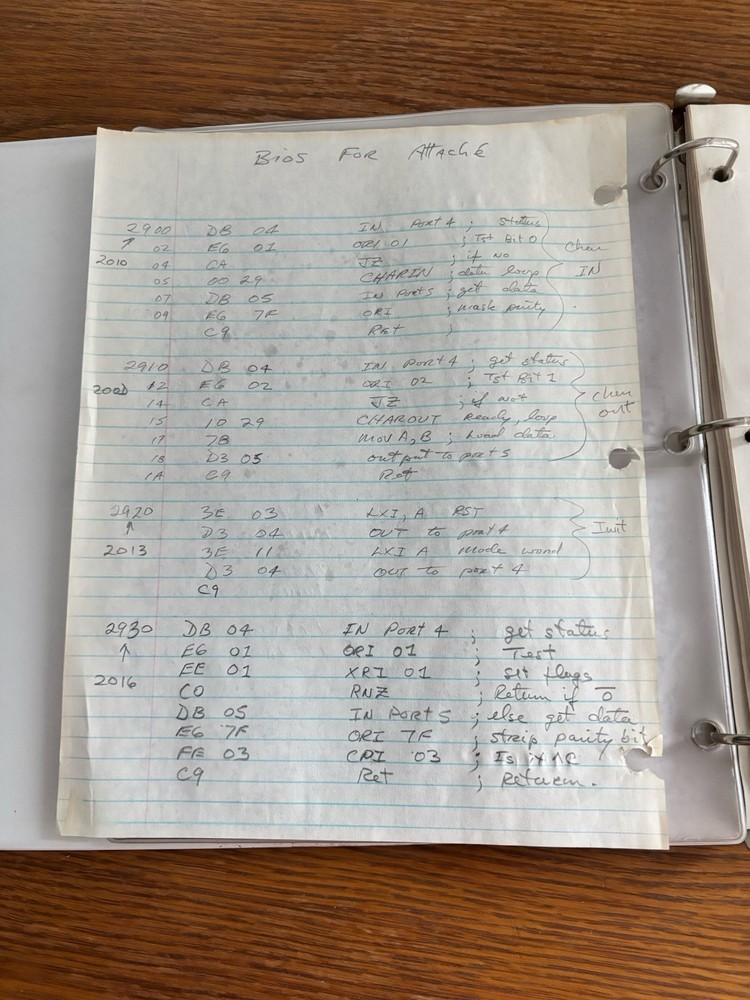 BIOS FOR AttachÉ
2900 DB 04 IN Port 4 ; Status
↑ 02 E6 01 ORI 01 ; Tst Bit 0 Char
2010 04 CA JZ ; if no IN
05 00 29 CHARIN ; data loop
07 DB 05 IN Port 5 ; get data
09 E6 7F ORI ; mask parity
C9 Ret ;
2910 DB 04 IN Port 4 ; get status
12 E6 02 ORI 02 ; Tst Bit 1
14 CA JZ ; if not char out
15 10 29 CHAROUT Ready, loop
17 7B MOV A,B ; Load data
18 D3 05 output to port 5
1A C9 Ret
2920 3E 03 LXI, A RST
↑ D3 04 OUT to port 4 Init
2013 3E 11 LXI A Mode word
D3 04 OUT to port 4
C9
2930 DB 04 IN Port 4 ; get status
↑ E6 01 ORI 01 ; Test
EE 01 XRI 01 ; set flags
2016 C0 RNZ ; Return if 0
DB 05 IN Port 5 ; else get data
E6 7F ORI 7F ; strip parity bit
FE 03 CPI 03 ; Is it ^C
C9 Ret ; Return.